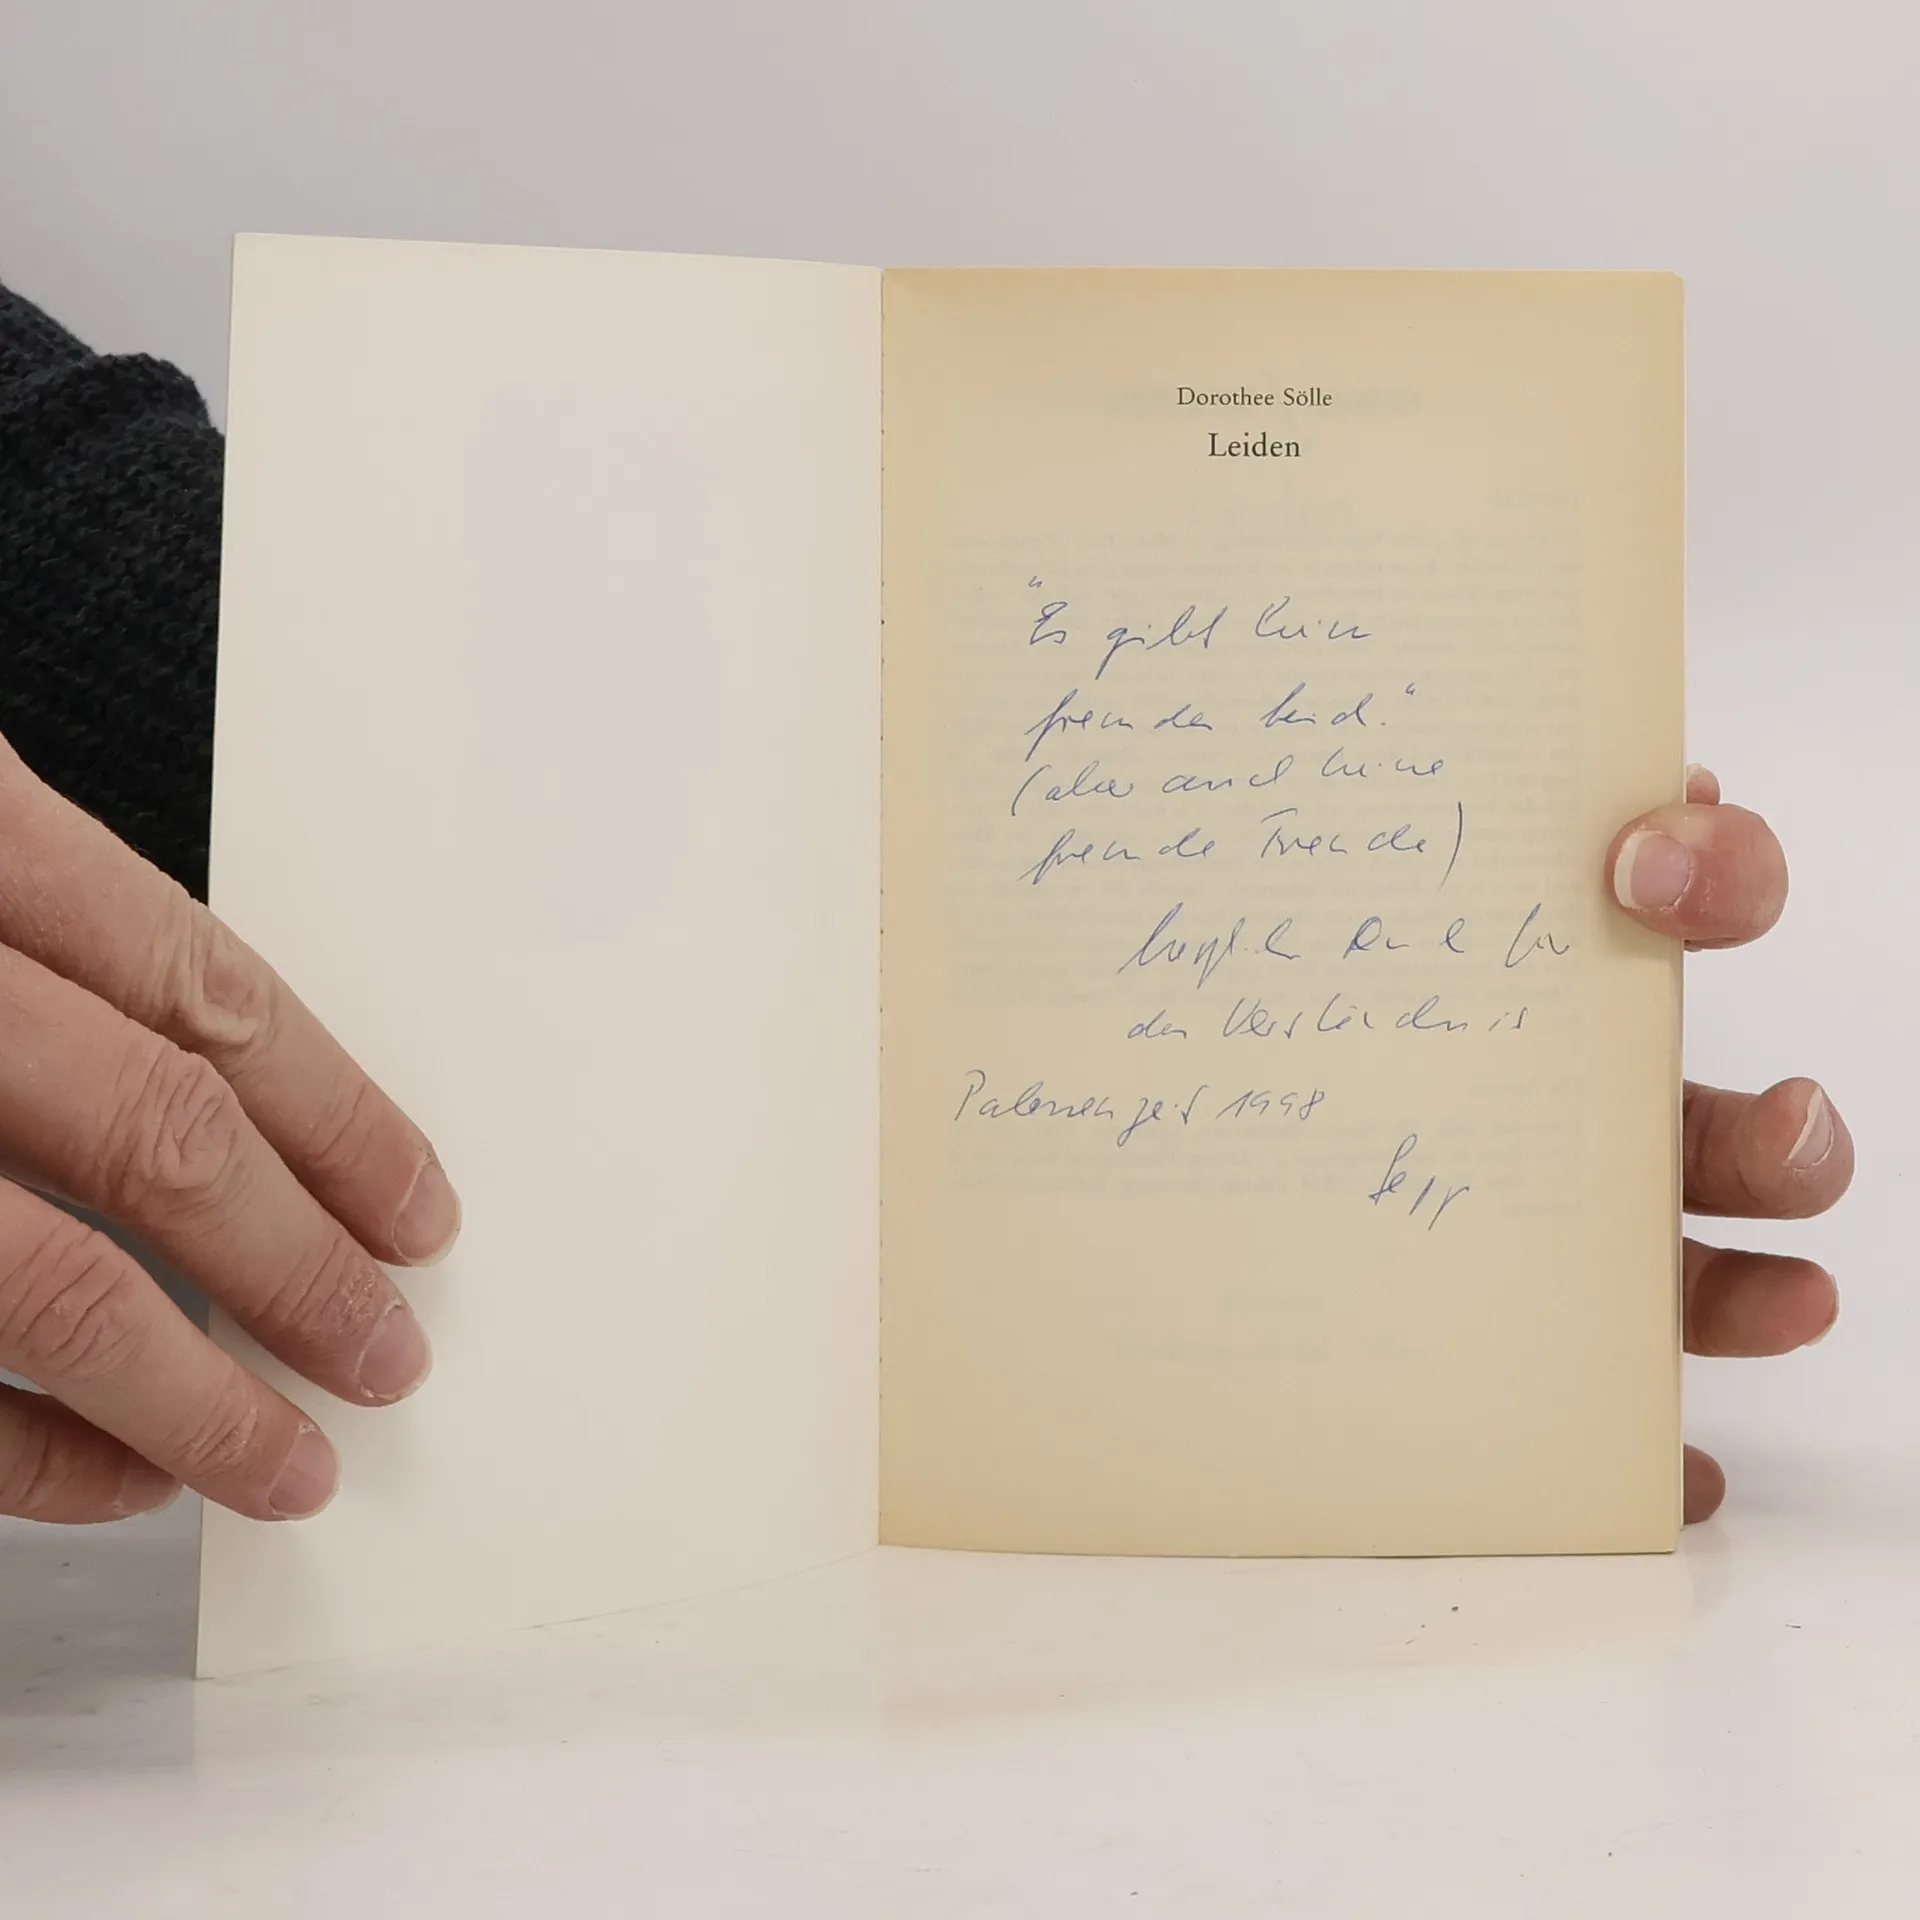 Dorothee Sölle
Leiden
"Es gibt kein
fremdes Leid."
(aber auch keine
fremde Freude)
herzlichen Dank für
das Verständnis
1998
Sepp